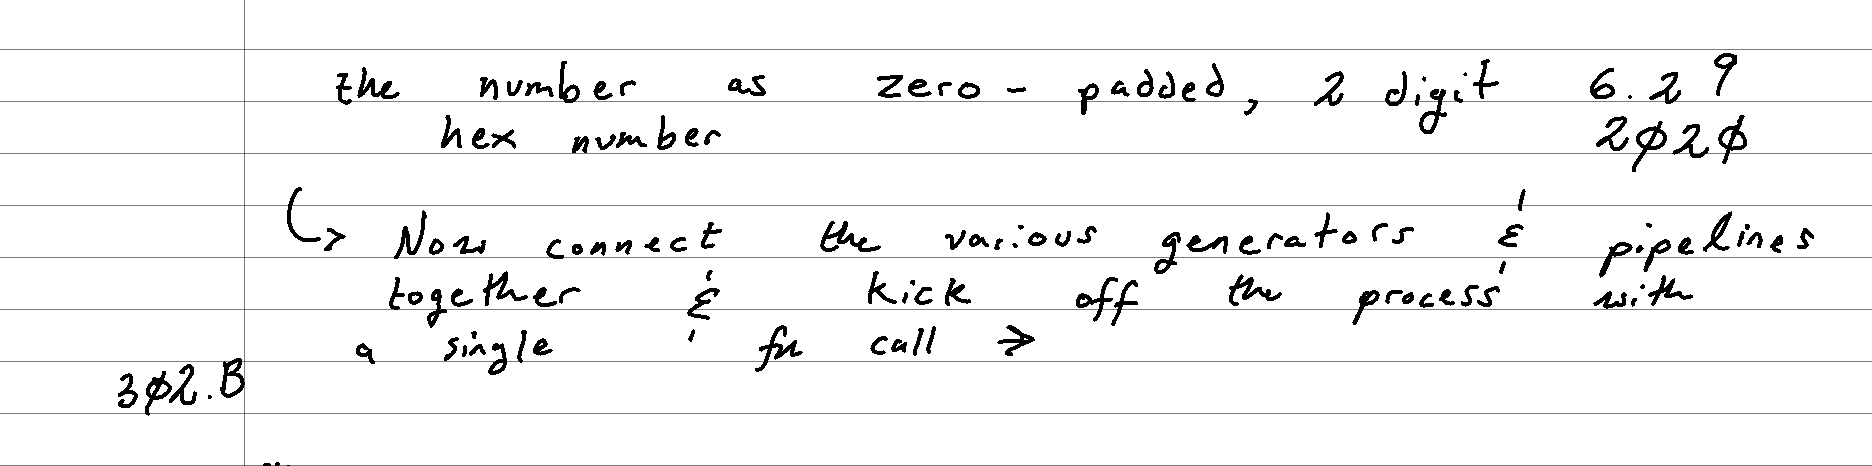 the number as zero-padded, 2 digit 6.29
hex number 2020
↳ Now connect the various generators & pipelines
together & kick off the process with
a single fn call →
302.B